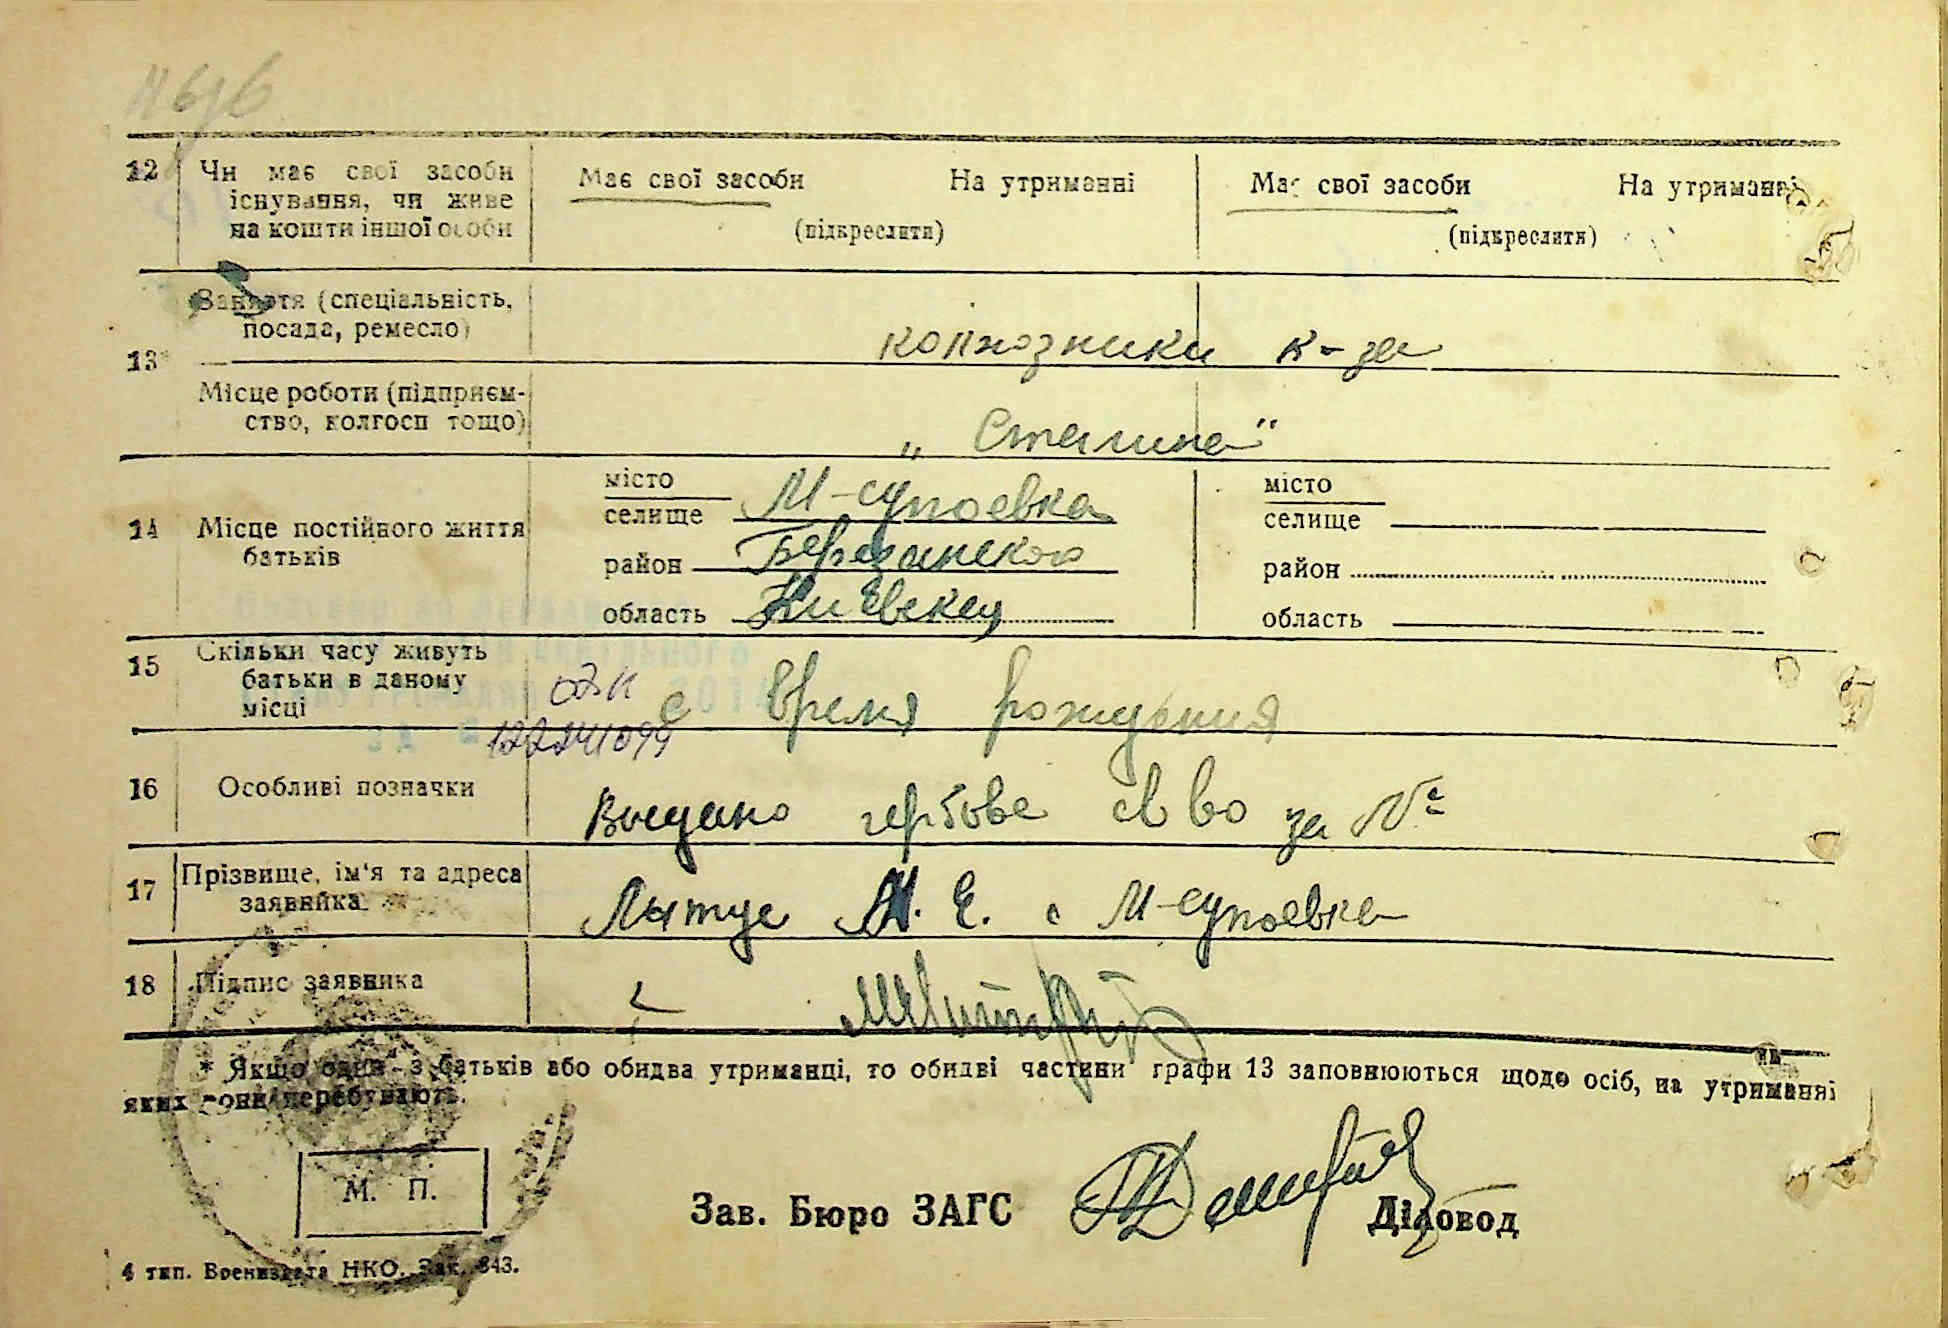 12 Чи має свої засоби Має свої засоби На утриманні Має свої засоби На утриманні
існування, чи живе
на кошти іншої особи (підкреслити) (підкреслити)
Заняття (спеціальність,
посада, ремесло)
колхозники к-за
13*
Місце роботи (підприєм-
ство, колгосп тощо)
„Сталина"
14 Місце постійного життя
батьків
місто
селище М-супоевка
район Березанского
область Киевской
місто
селище
район
область
15 Скільки часу живуть
батьки в даному
місці
с время рождения
16 Особливі позначки
Выдано гербове св во за №
17 Прізвище, ім'я та адреса
заявника
М. Е. с М-супоевка
18 Підпис заявника
* Якщо один з батьків або обидва утриманці, то обидві частини графи 13 заповнюються щодо осіб, на утриманні
яких вони перебувають.
М. П.
Зав. Бюро ЗАГС Діловод
4 тип. Воениздата НКО. Зак. 843.